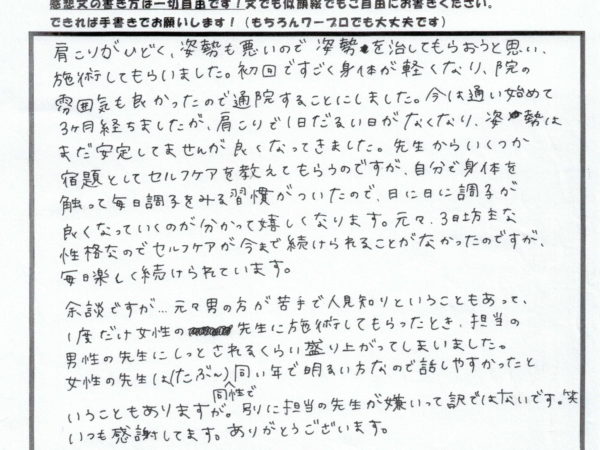 感想文の書き方は一切自由です！文でも似顔絵でもご自由にお書きください。
できれば手書きでお願いします！（もちろんワープロでも大丈夫です）
肩こりがひどく、姿勢も悪いので姿勢を治してもらおうと思い、
施術してもらいました。初回ですごく身体が軽くなり、院の
雰囲気も良かったので通院することにしました。今は通い始めて
3ヶ月経ちましたが、肩こりで1日だるい日がなくなり、姿勢は
まだ安定してませんが良くなってきました。先生からいくつか
宿題としてセルフケアを教えてもらうのですが、自分で身体を
触って毎日調子をみる習慣がついたので、日に日に調子が
良くなっていくのが分かって嬉しくなります。元々、3日坊主な
性格なのでセルフケアが今まで続けられることがなかったのですが、
毎日楽しく続けられています。
余談ですが…元々男の方が苦手で人見知りということもあって、
1度だけ女性の先生に施術してもらったとき、担当の
男性の先生にしっとされるくらい盛り上がってしまいました。
女性の先生は(たぶん)同い年で明るい方なので話しやすかったと
同性で
いうこともありますが。別に担当の先生が嫌いって訳ではないです。笑
いつも感謝してます。ありがとうございます。